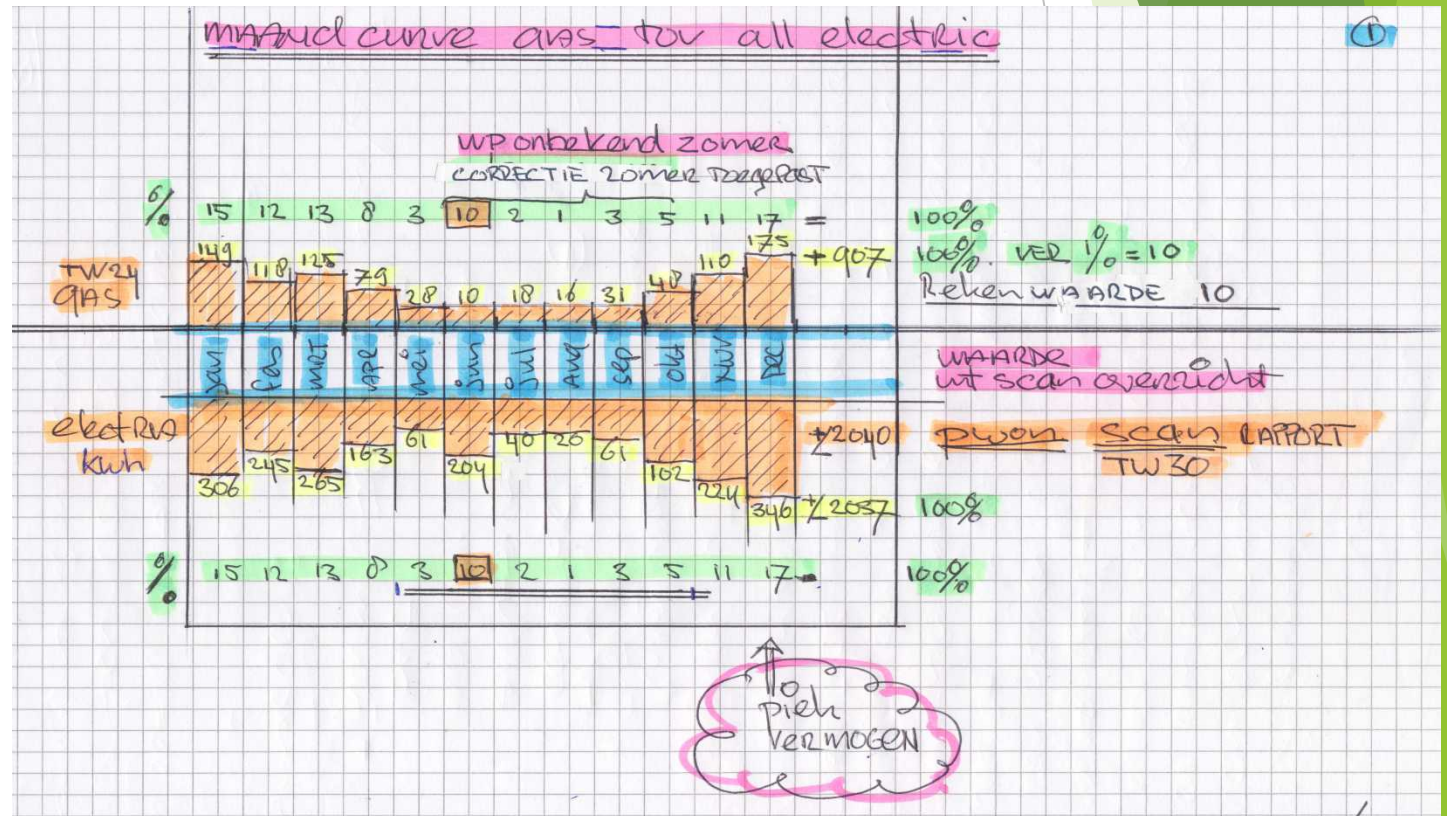 MAANd curve gas tov all electric
1
WP onbekend zomer
CORRECTIE ZOMER TOEGEPAST
% 15 12 13 8 3 10 2 1 3 5 11 17 = 100%
149 118 125 79 28 10 18 16 31 48 110 175 + 907 100%. VER 1% = 10
TW24
GAS
Reken WAARDE 10
jan feb MRT APR mei jun jul Aug sep okt NOV DEC
WAARDE
uit scan overzicht
electra
kwh
306 245 265 163 61 204 40 20 61 102 224 346
2040
pwon scan RAPPORT
TW30
+/ 2037 100%
% 15 12 13 8 3 10 2 1 3 5 11 17 = 100%
piek
VERMOGEN